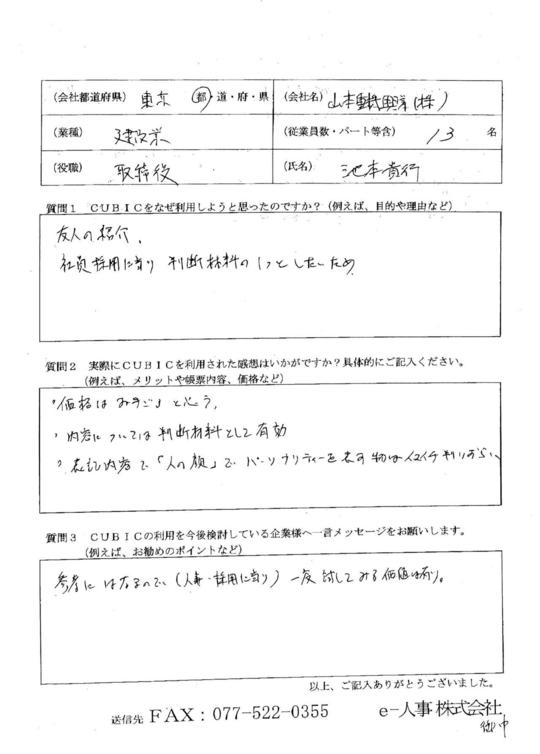 (会社都道府県) 東京 都・道・府・県 (会社名) 山本 (株)
(業種) 建設業 (従業員数・パート等含) 13 名
(役職) 取締役 (氏名) 池本貴行
質問1 CUBICをなぜ利用しようと思ったのですか？(例えば、目的や理由など)
友人の紹介、
社員採用に当り 判断材料の1つとしたいため
質問2 実際にCUBICを利用された感想はいかがですか？具体的にご記入ください。
(例えば、メリットや帳票内容、価格など)
価格は と思う。
内容については判断材料として有効
表記内容で「人の顔」でパーソナリティーを表す物はイマイチ判りずらい、
質問3 CUBICの利用を今後検討している企業様へ一言メッセージをお願いします。
(例えば、お勧めのポイントなど)
参考にはなるので、(人事・採用に当り) 一度試してみる価値は有り。
以上、ご記入ありがとうございました。
送信先 FAX：077-522-0355 e-人事 株式会社
御中